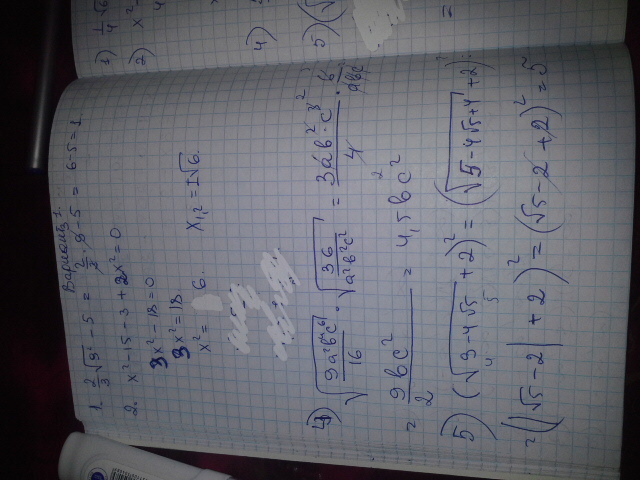 Вариант 1.
1. \frac{2}{3}\sqrt{9} - 5 = \frac{2}{3} \cdot 9 - 5 = 6 - 5 = 1
2. x² - 15 - 3 + 2x² = 0
3x² - 18 = 0
3x² = 18
x² = 6. x₁,₂ = ±√6.
4) \sqrt{\frac{9a²b⁴c⁶}{16}} \cdot \sqrt{\frac{36}{a²b²c²}} = \frac{3ab² \cdot c³}{4} \cdot \frac{6}{abc}
= \frac{9bc²}{2} = 4,5bc²
5) (\sqrt{9-4√5} + 2)² = (\sqrt{5-4√5+4} + 2)²
= (|√5-2| + 2)² = (√5-2+2)² = 5
1) \frac{1}{4}√6
2) x²
4)
5) (√
=